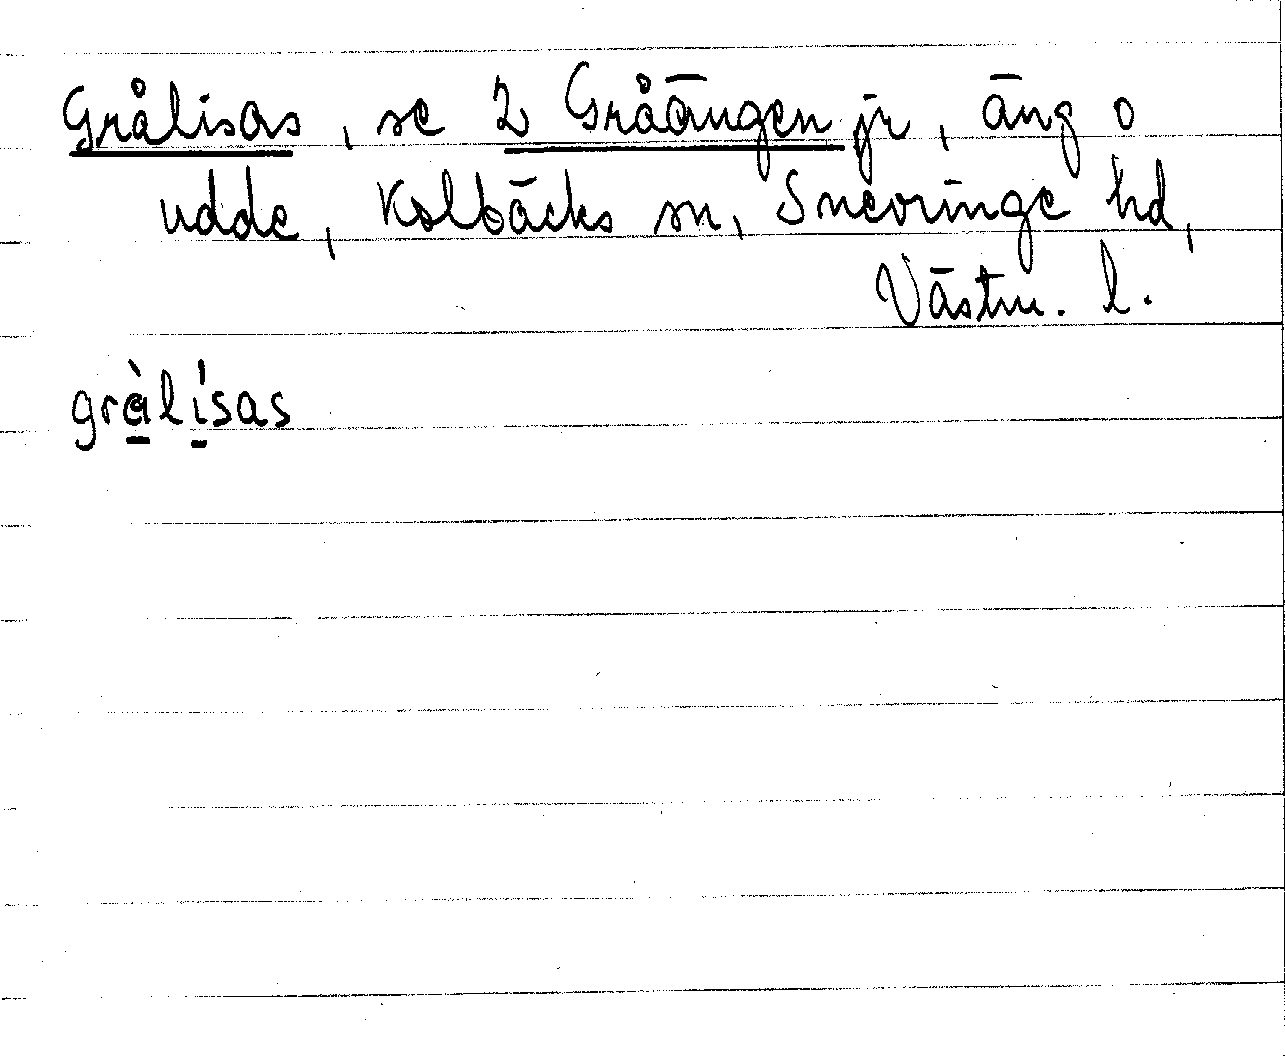 Grålisas, se 2 Gråängen jr, äng o
udde, Kolbäcks sn, Snevringe hd,
Västm. l.
grà̱lí̱sas